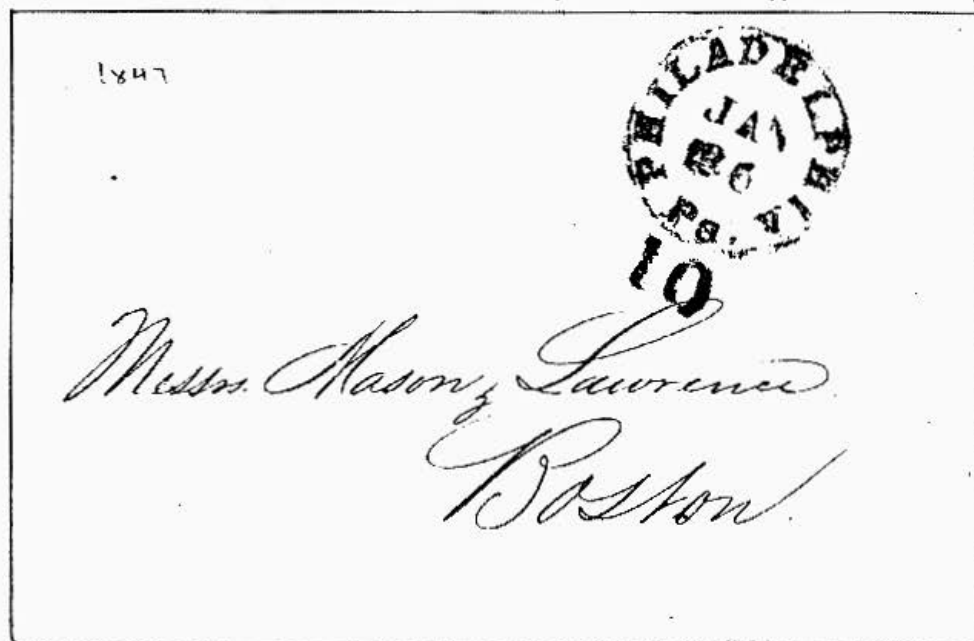 1847
PHILADELPHIA
JAN
26
Pa.
10
Messrs. Mason & Lawrence
Boston